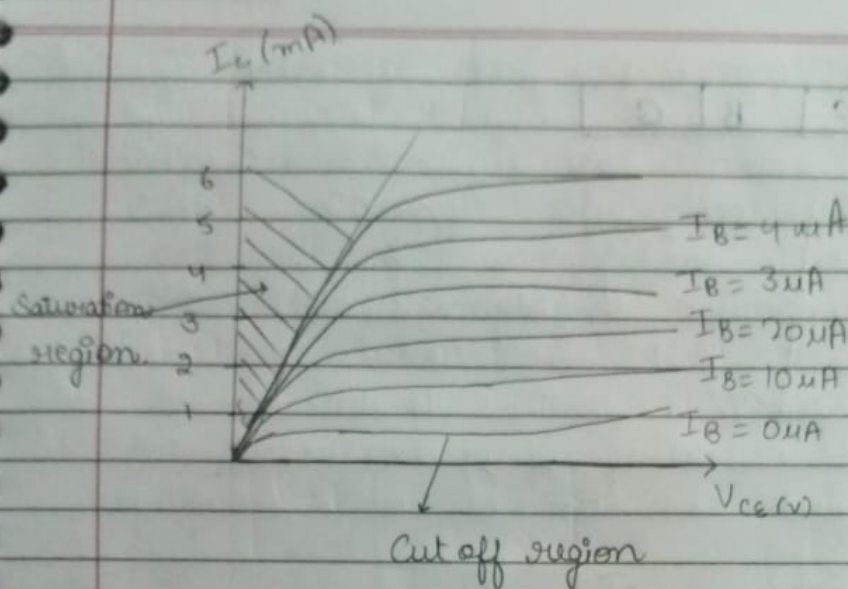 Ic (mA)
6
5
4
3
2
1
Saturation
region.
IB = 4 μA
IB = 3 μA
IB = 20 μA
IB = 10 μA
IB = 0 μA
VCE (V)
Cut off region